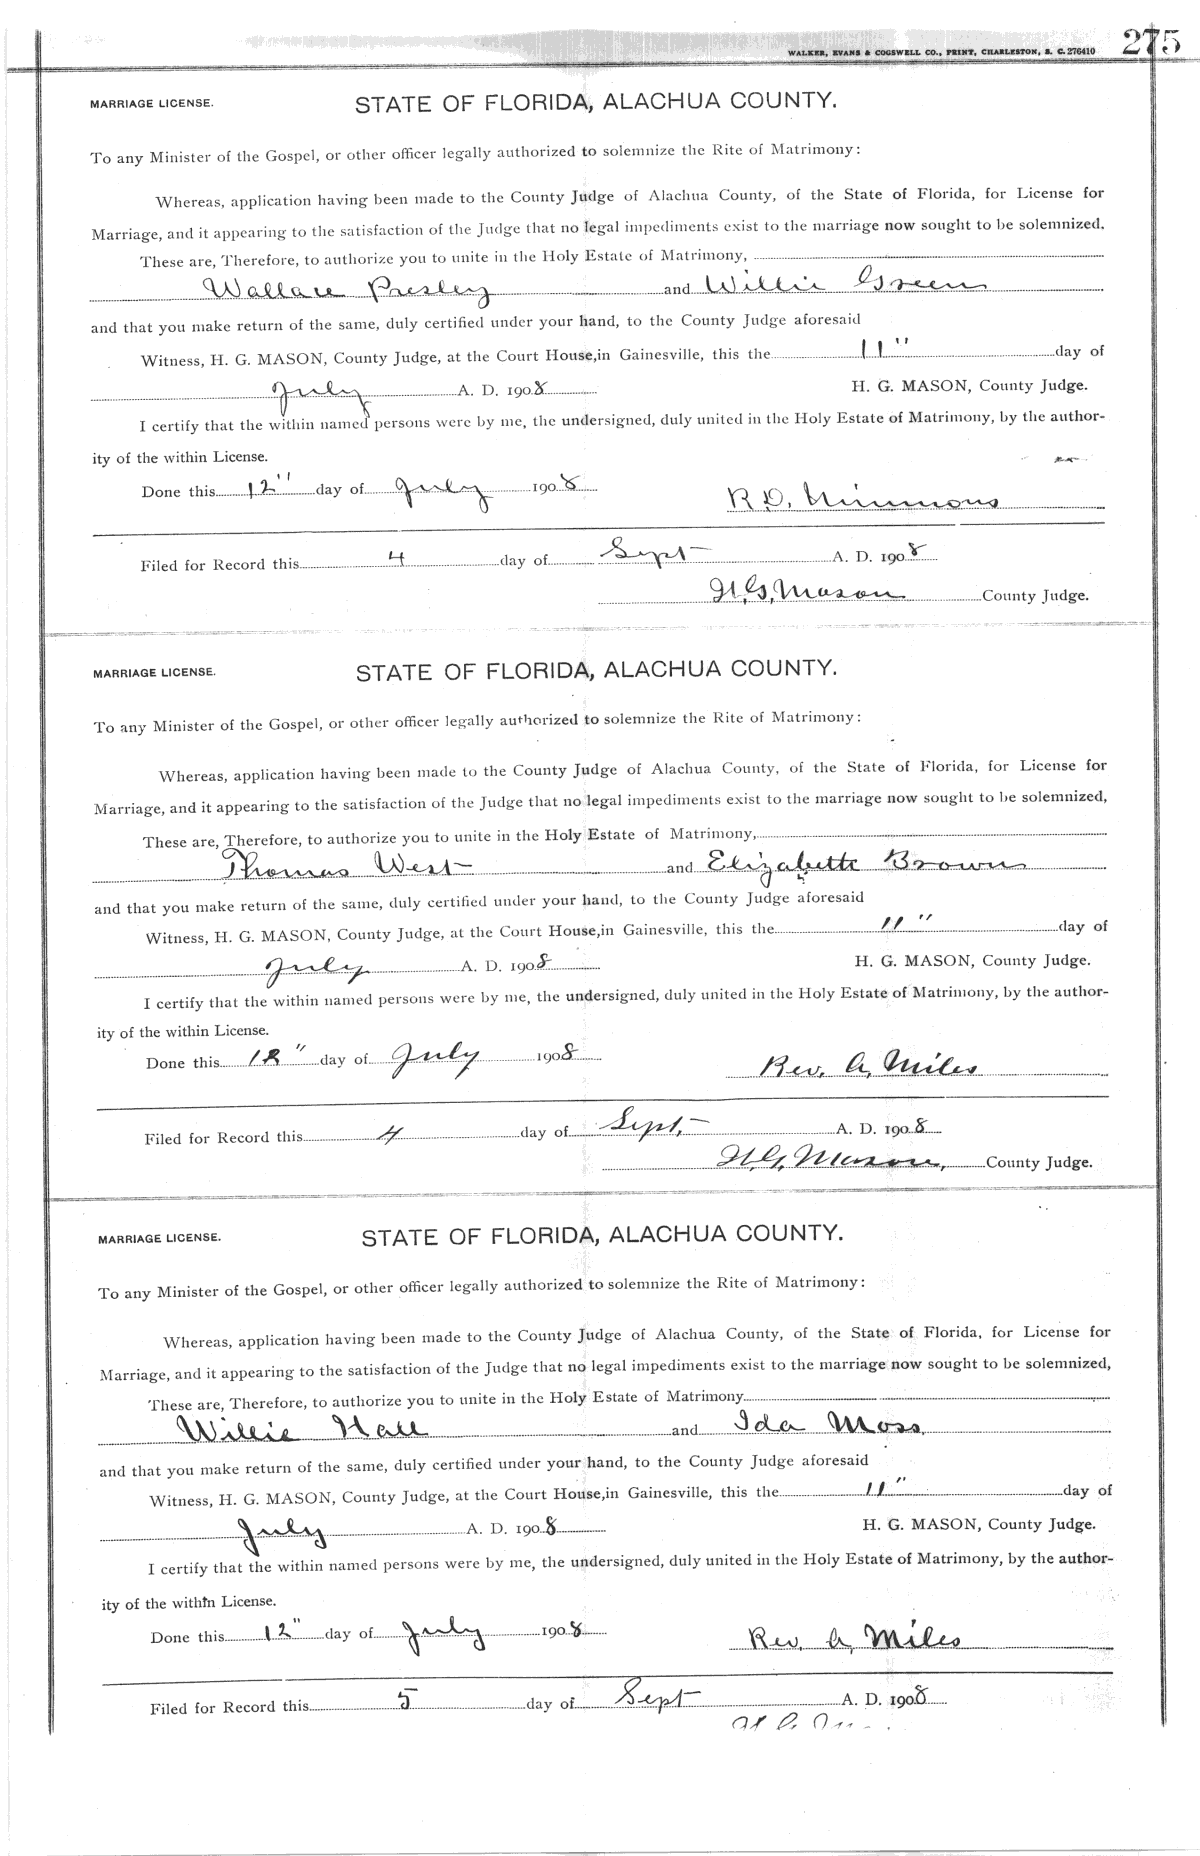 WALKER, EVANS & COGSWELL CO., PRINT, CHARLESTON, S. C. 276410 275
MARRIAGE LICENSE. STATE OF FLORIDA, ALACHUA COUNTY.
To any Minister of the Gospel, or other officer legally authorized to solemnize the Rite of Matrimony:
Whereas, application having been made to the County Judge of Alachua County, of the State of Florida, for License for
Marriage, and it appearing to the satisfaction of the Judge that no legal impediments exist to the marriage now sought to be solemnized.
These are, Therefore, to authorize you to unite in the Holy Estate of Matrimony,
Wallace Presley and Willie Green
and that you make return of the same, duly certified under your hand, to the County Judge aforesaid
Witness, H. G. MASON, County Judge, at the Court House, in Gainesville, this the 11" day of
July A. D. 1908 H. G. MASON, County Judge.
I certify that the within named persons were by me, the undersigned, duly united in the Holy Estate of Matrimony, by the author-
ity of the within License.
Done this 12" day of July 1908 R. D. Nimmons
Filed for Record this 4 day of Sept A. D. 1908
H. G. Mason County Judge.
MARRIAGE LICENSE. STATE OF FLORIDA, ALACHUA COUNTY.
To any Minister of the Gospel, or other officer legally authorized to solemnize the Rite of Matrimony:
Whereas, application having been made to the County Judge of Alachua County, of the State of Florida, for License for
Marriage, and it appearing to the satisfaction of the Judge that no legal impediments exist to the marriage now sought to be solemnized,
These are, Therefore, to authorize you to unite in the Holy Estate of Matrimony,
Thomas West and Elizabeth Brown
and that you make return of the same, duly certified under your hand, to the County Judge aforesaid
Witness, H. G. MASON, County Judge, at the Court House, in Gainesville, this the 11" day of
July A. D. 1908 H. G. MASON, County Judge.
I certify that the within named persons were by me, the undersigned, duly united in the Holy Estate of Matrimony, by the author-
ity of the within License.
Done this 12" day of July 1908 Rev. A. Miles
Filed for Record this 4 day of Sept. A. D. 1908
H. G. Mason, County Judge.
MARRIAGE LICENSE. STATE OF FLORIDA, ALACHUA COUNTY.
To any Minister of the Gospel, or other officer legally authorized to solemnize the Rite of Matrimony:
Whereas, application having been made to the County Judge of Alachua County, of the State of Florida, for License for
Marriage, and it appearing to the satisfaction of the Judge that no legal impediments exist to the marriage now sought to be solemnized,
These are, Therefore, to authorize you to unite in the Holy Estate of Matrimony
Willie Hall and Ida Moss.
and that you make return of the same, duly certified under your hand, to the County Judge aforesaid
Witness, H. G. MASON, County Judge, at the Court House, in Gainesville, this the 11" day of
July A. D. 1908 H. G. MASON, County Judge.
I certify that the within named persons were by me, the undersigned, duly united in the Holy Estate of Matrimony, by the author-
ity of the within License.
Done this 12" day of July 1908 Rev. A. Miles
Filed for Record this 5 day of Sept A. D. 1908